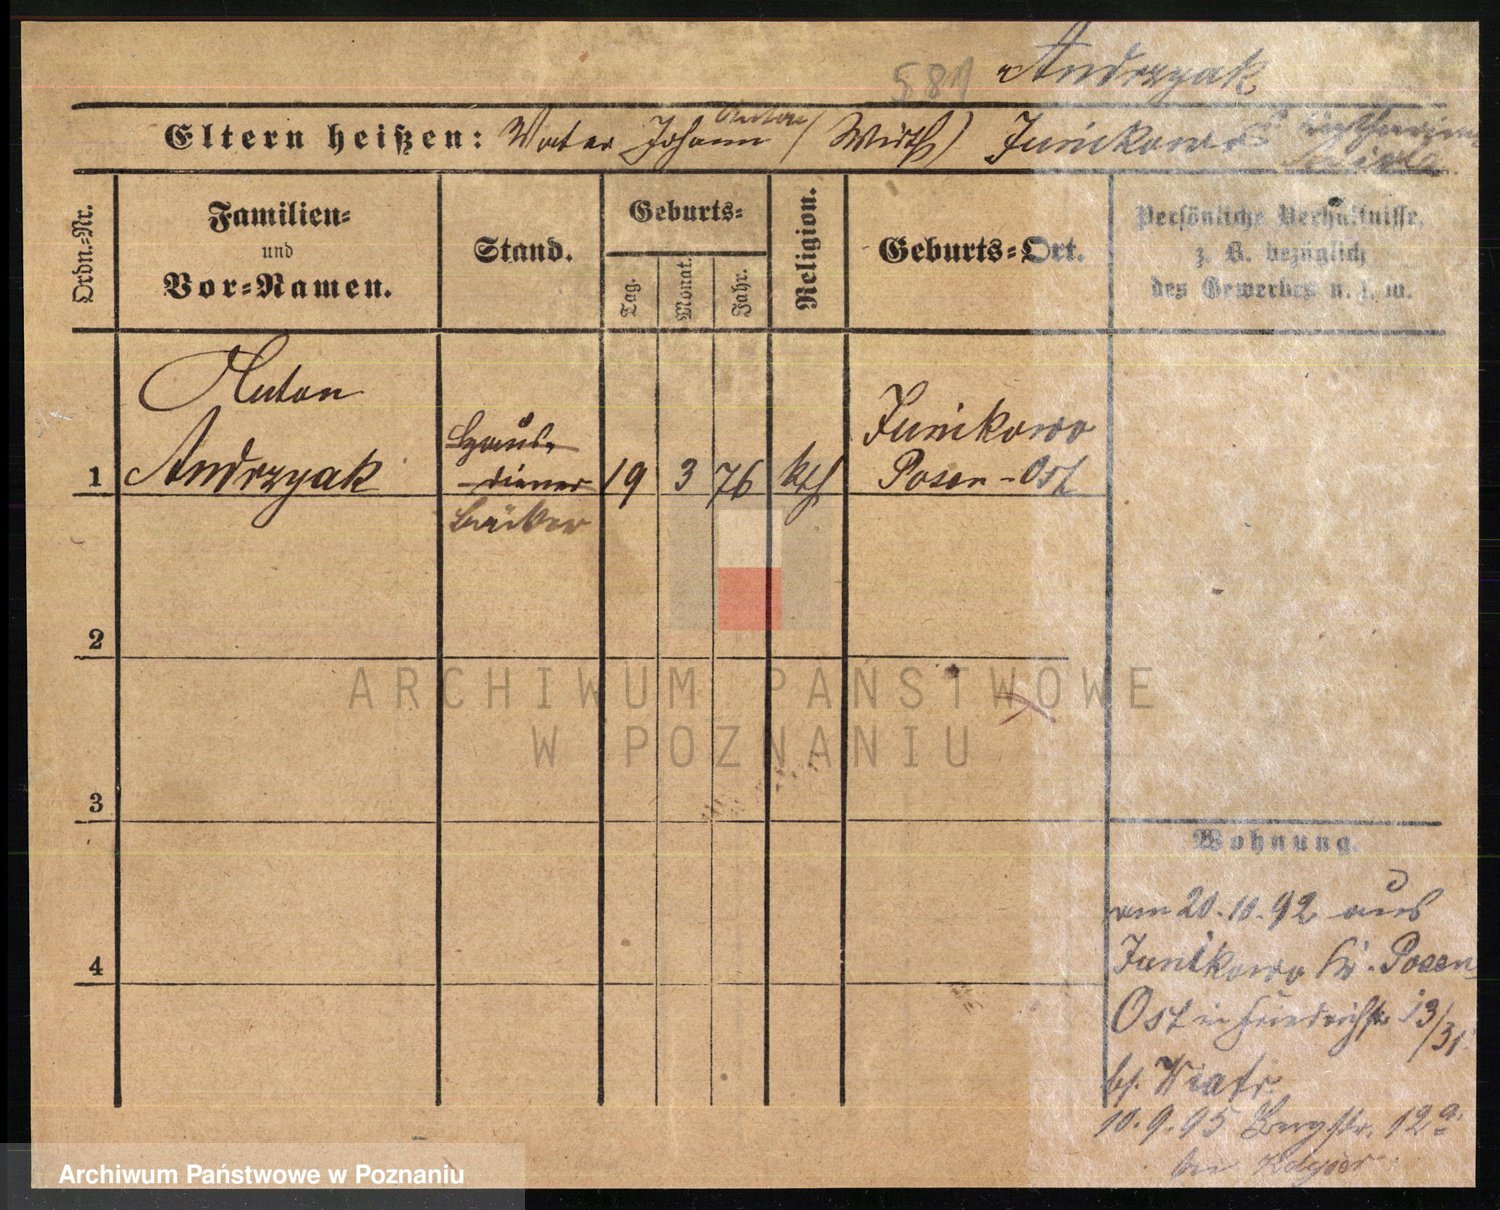 581 Andrzyak
Anton
Eltern heißen: Vater Johann (Wirth) Junikowo
Ordn.=Nr.
Familien=
und
Vor=Namen.
Stand.
Geburts=
Tag.
Monat.
Jahr.
Religion.
Geburts=Ort.
Persönliche Verhältnisse,
z. B. bezüglich
des Gewerbes u. s. w.
Anton
Andrzyak
Haus-
diener
Bäcker
1
19 3 76 kth
Junikowo
Posen-Ost
2
3
4
ARCHIWUM PAŃSTWOWE
W POZNANIU
Wohnung.
am 20.10.92 aus
Junikowo Kr. Posen-
Ost in Friedrichstr 13/31.
bf. Wiatr.
10.9.95 Bergstr. 12a.
bei Kayser
Archiwum Państwowe w Poznaniu